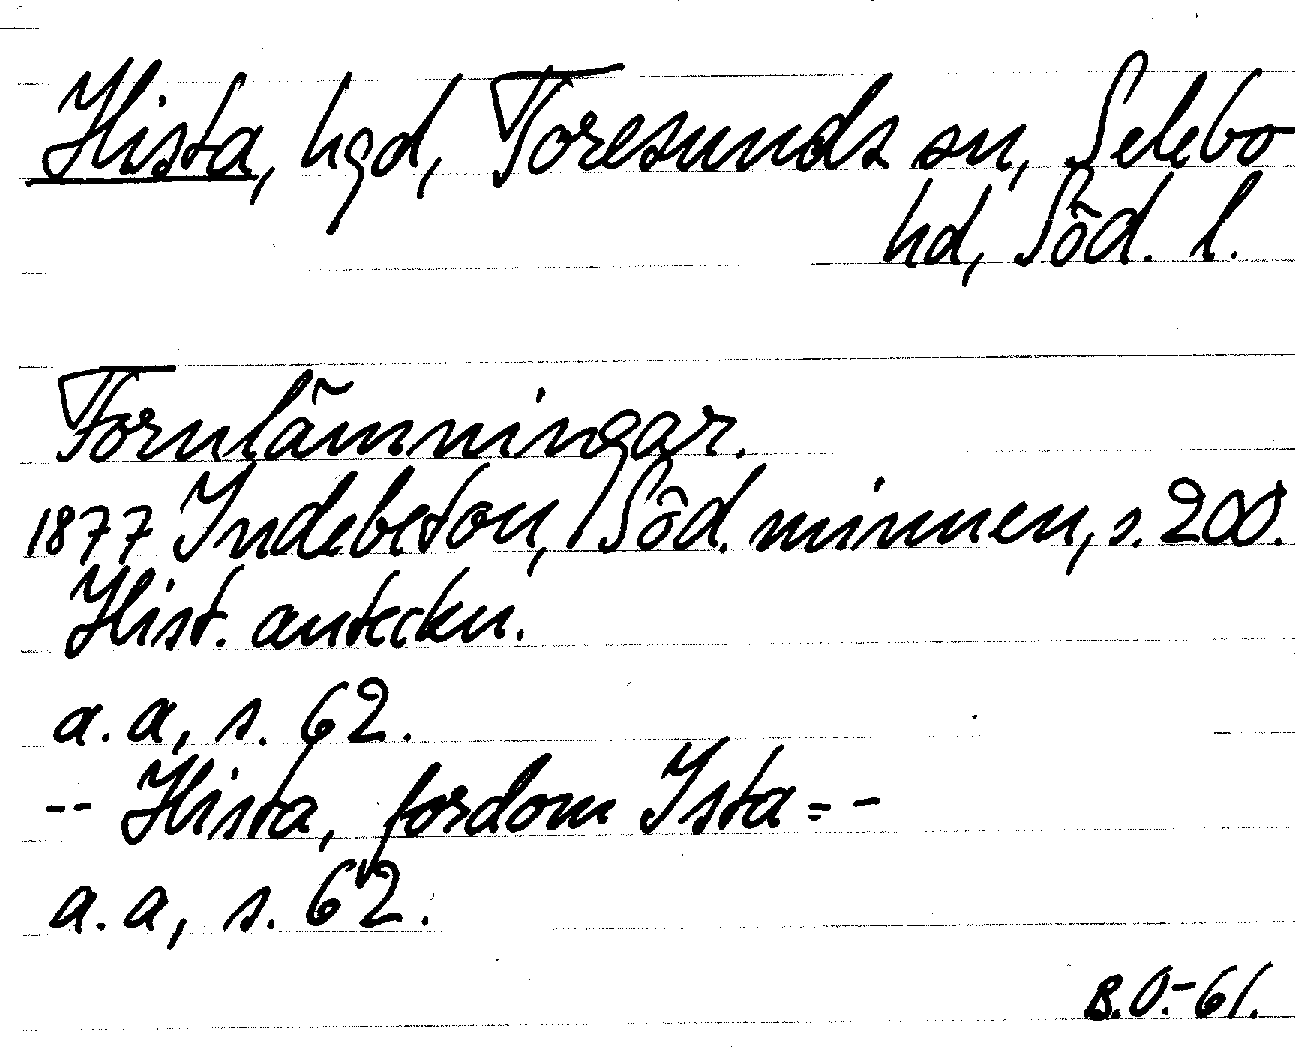 Hista, hgd, Toresunds sn, Selebo
hd, Söd. l.
Fornlämningar.
1877 Indebetou, Söd. minnen, s. 200.
Hist. anteckn.
a. a, s. 62.
-- Hista, fordom Ista = -
a. a, s. 62.
B.O.-61.